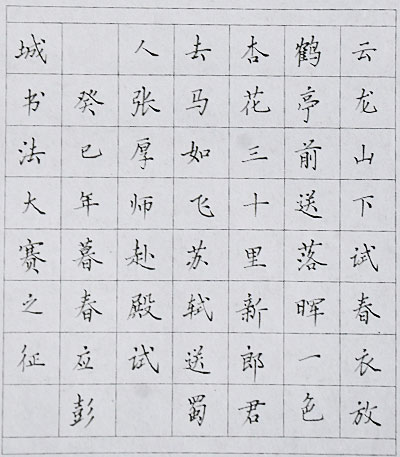 云龙山下试春衣放
鹤亭前送落晖一色
杏花三十里新郎君
去马如飞苏轼送蜀
人张厚师赴殿试
癸巳年暮春应彭
城书法大赛之征